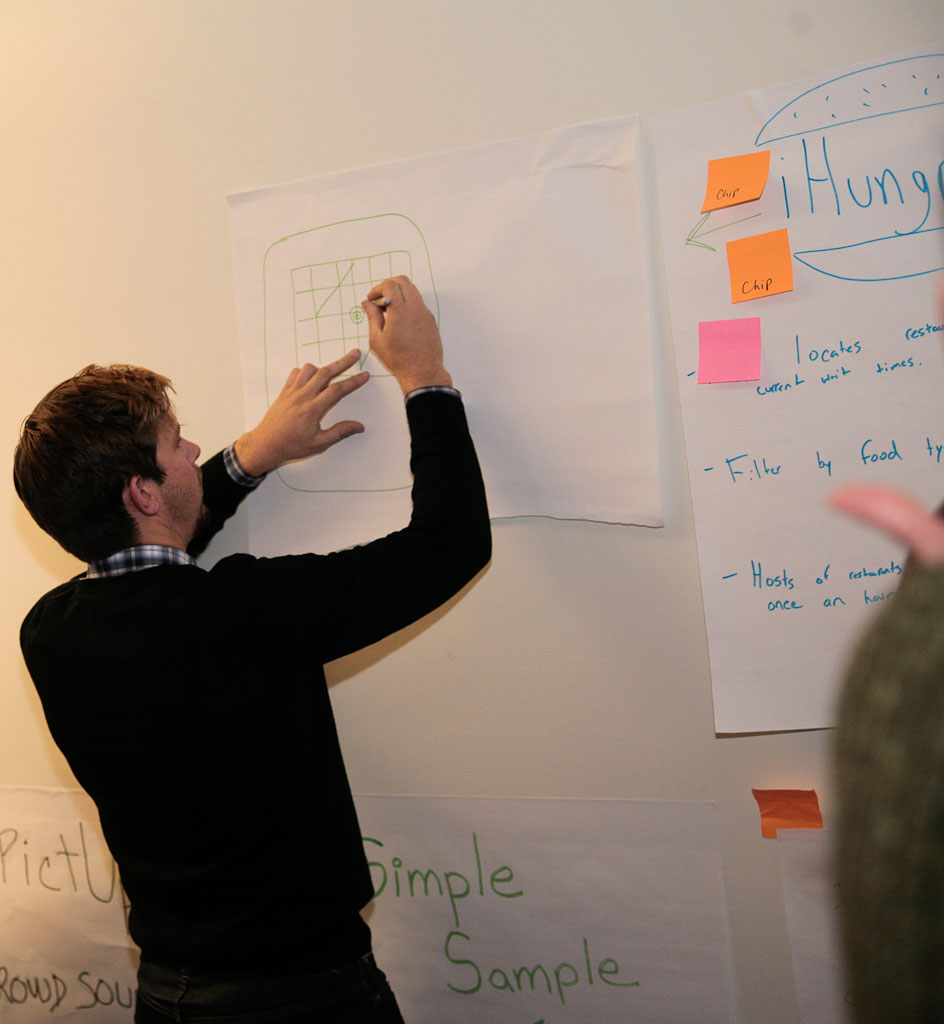 Chip
iHungr
Chip
locates
current wait times.
- Filter by food ty
- Hosts of restaurants
once an hour
PictU
Simple
Sample
ROWD SOU